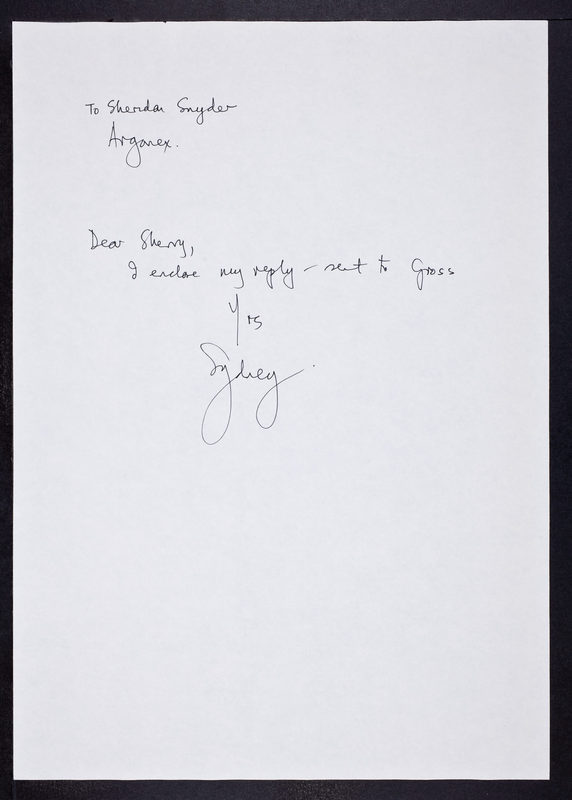 To Sheridan Snyder
Arganex.
Dear Sherry,
I enclose my reply – sent to Gross
Yrs
Sydney.